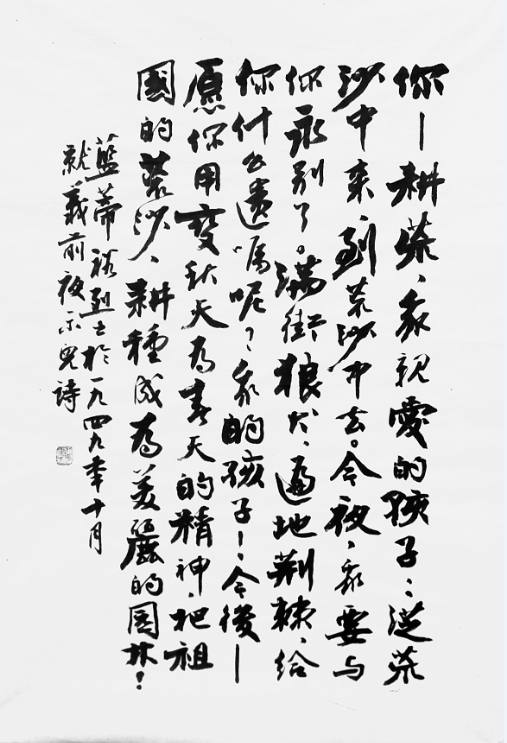 你—耕荒、我親愛的孩子：從荒
沙中来，到荒沙中去。今夜，我要与
你永别了。滿街狼犬、遍地荆棘、给
你什么遺嘱呢？我的孩子！今後—
愿你用變秋天為春天的精神，把祖
國的荒沙、耕種成為美麗的园林！
藍蒂裕烈士於一九四九年十月
就義前夜示兒詩